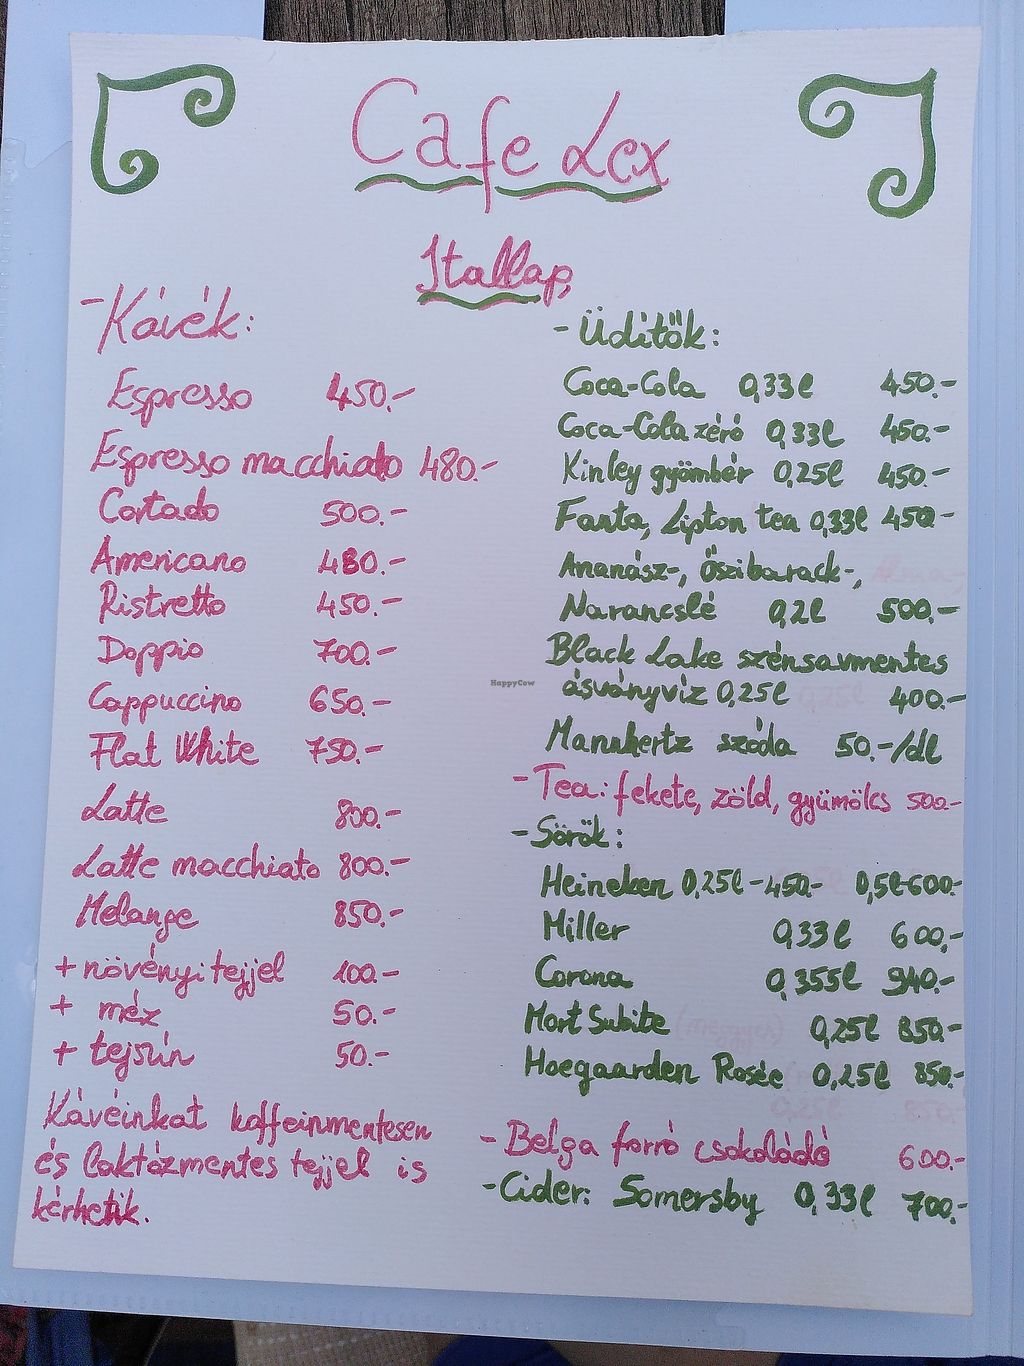 Cafe Lex
Itallap
- Kávék:
Espresso 450.-
Espresso macchiato 480.-
Cortado 500.-
Americano 480.-
Ristretto 450.-
Doppio 700.-
Cappuccino 650.-
Flat White 750.-
Latte 800.-
Latte macchiato 800.-
Melange 850.-
+ növényi tejjel 100.-
+ méz 50.-
+ tejszín 50.-
Kávéinkat koffeinmentesen
és laktózmentes tejjel is
kérhetik.
- Üdítők:
Coca-Cola 0,33l 450.-
Coca-Cola zéró 0,33l 450.-
Kinley gyömbér 0,25l 450.-
Fanta, Lipton tea 0,33l 450-
Ananász-, Őszibarack-,
Narancslé 0,2l 500.-
Black Lake szénsavmentes
ásványvíz 0,25l 400.-
Mannhertz szóda 50.-/dl
- Tea: fekete, zöld, gyümölcs 500.-
- Sörök:
Heineken 0,25l-450.- 0,5l-600.-
Miller 0,33l 600,-
Corona 0,355l 940.-
Mort Subite 0,25l 850.-
Hoegaarden Rosée 0,25l 850.-
- Belga forró csokoládé 600.-
- Cider: Somersby 0,33l 700.-
HappyCow